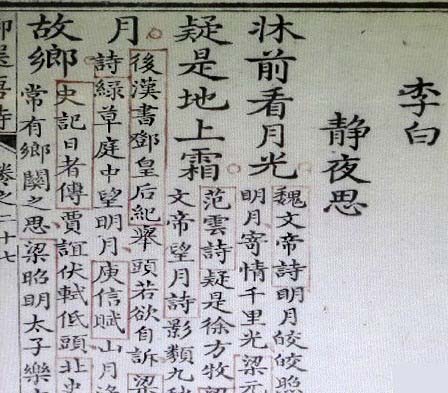 李白
静夜思
牀前看月光
魏文帝詩明月皎皎照
明月寄情千里光梁元
疑是地上霜
范雲詩疑是徐方牧梁
文帝望月詩影類九
月
後漢書鄧皇后紀舉頭若欲自訴梁
詩綠草庭中望明月庾信賦山月
故鄉
史記日者傳賈誼伏軾低頭北史
常有鄉關之思梁昭明太子樂
卷之二十七